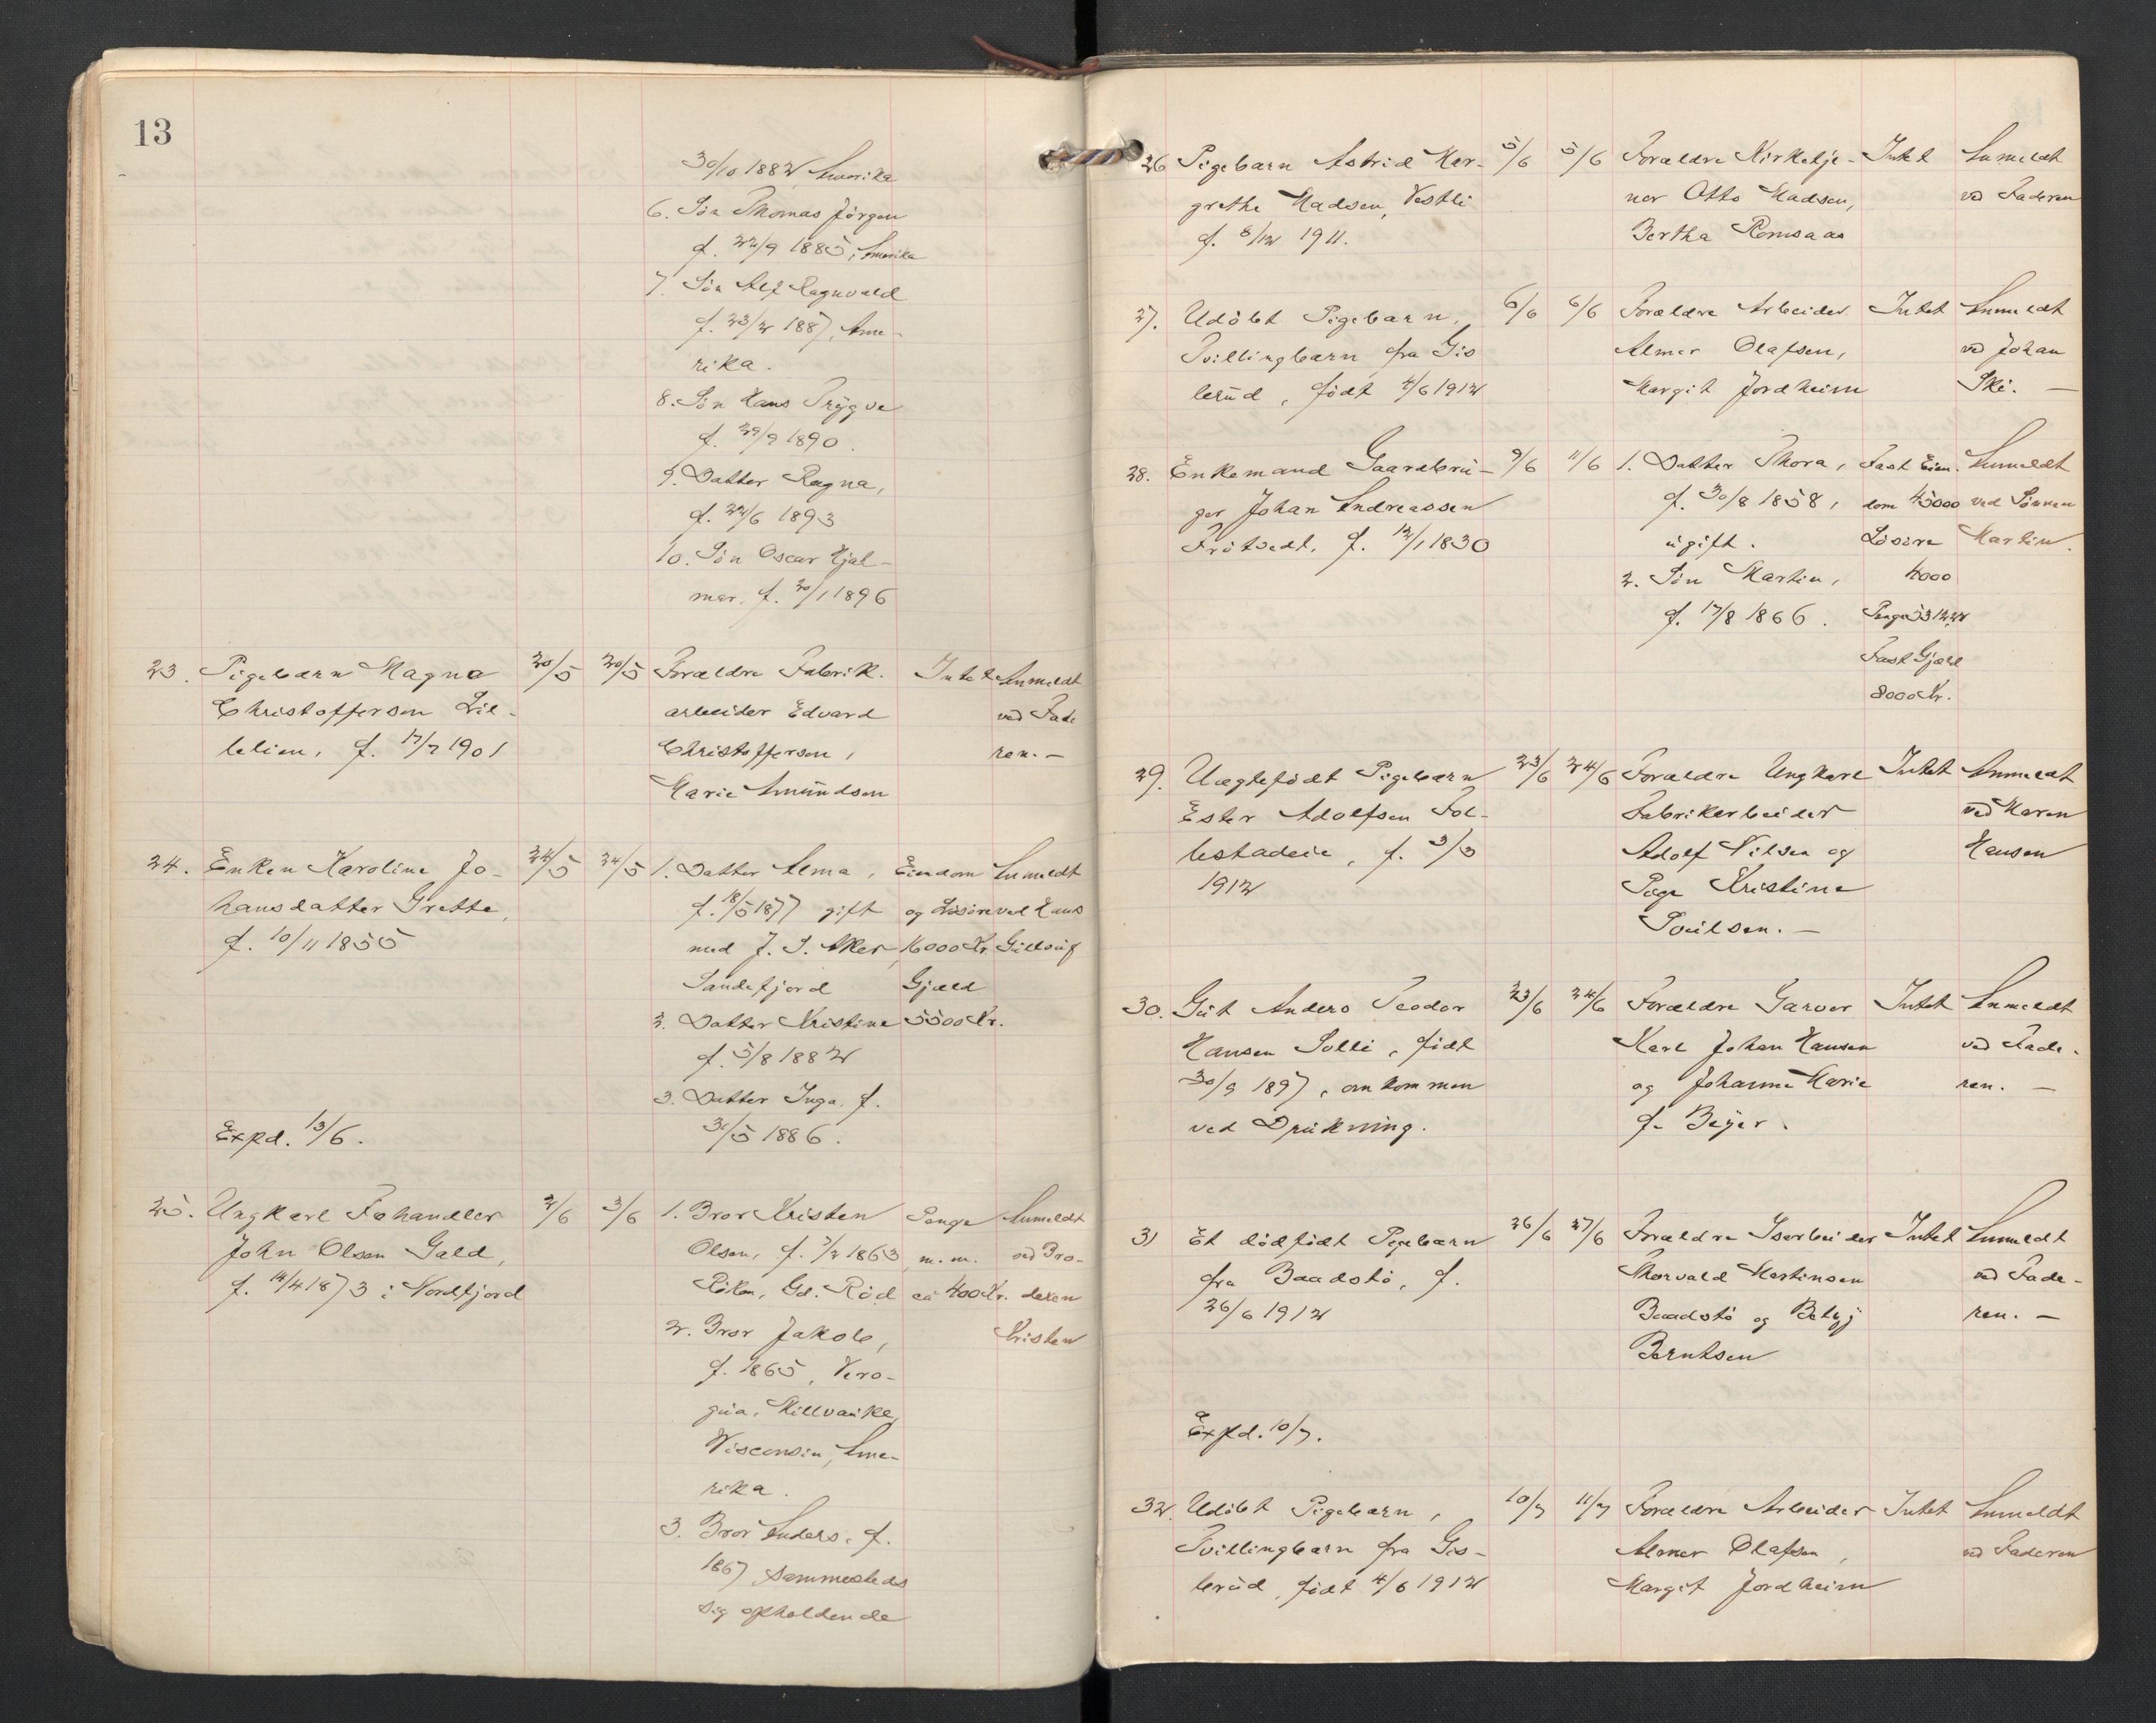 13
30/10 1882, Amerika
6. Søn Thomas Jörgen
f. 22/9 1885, Amerika
7. Søn Alf Ragnvald
f. 23/2 1887, Ame-
rika.
8. Søn Hans Trygve
f. 29/9 1890.
9. Datter Ragna,
f. 22/6 1893
10. Søn Oscar Hjal-
mar. f. 20/1 1896
23. Pigebarn Magna 20/5 20/5 Forældre Fabrik. Intet Anmeldt
Christoffersen Lil- arbeider Edvard ved Fade
lelien, f. 17/7 1901 Christoffersen, ren. —
Marie Amundsen
24. Enken Karoline Jo- 24/5 24/5 1. Datter Alma, Eiendom Anmeldt
hansdatter Grette, f. 18/5 1877 gift og Løsøre ved Hans
f. 10/11 1855 med J. S. Aker, 16000 Kr. Gullaug
Sandefjord Gjæld
2. Datter Kristine 5500 Kr.
f. 5/8 1882
3. Datter Inga, f.
Expd. 13/6. 31/5 1886.
25. Ungkarl Fæhandler 2/6 3/6 1. Bror Kristen Penge Anmeldt
John Olsen Gald, Olsen, f. 7/2 1863, m.m. ved Bro-
f. 14/4 1873 i Nordfjord Röken, Gd. Röd ca 400 Kr. deren
2. Bror Jakob, Kristen
f. 1865, Vero-
gua, Millvauke,
Visconsin, Ame-
rika.
3. Bror Anders, f.
1867 sammesteds
sig opholdende
26 Pigebarn Astrid Mar- 5/6 5/6 Forældre Kirketje- Intet Anmeldt
grethe Madsen, Vestli ner Otto Madsen, ved Faderen
f. 8/12 1911. Bertha Romsaas
27. Udöbt Pigebarn, 6/6 6/6 Forældre Arbeider Intet Anmeldt
Tvillingbarn fra Gis Almer Olafsen, ved Johan
lerud, født 4/6 1912 Margit Jordheim Ski. —
28. Enkemand Gaardbru- 9/6 11/6 1. Datter Thora, Fast Eien. Anmeldt
ger Johan Andreassen f. 30/8 1858, dom 45000 ved Sønnen
Frötvedt. f. 12/1 1830 ugift. Løsøre Martin.
2. Søn Martin, 4000
f. 17/8 1866. Penge
Fast Gjæld
8000 Kr.
29. Uægtefødt Pigebarn 23/6 24/6 Forældre Ungkarl Intet Anmeldt
Ester Adolfsen Fol- Fabrikarbeider ved Maren
lestadeie, f. 3/3 Adolf Nilsen og Hansen
1912 Pige Kristine
Poulsen. —
30. Gut Anders Teodor 23/6 24/6 Forældre Garver Intet Anmeldt
Hansen Solli, født Karl Johan Hansen ved Fade-
30/9 1897, omkommen og Johanne Marie ren. —
ved Drukning. f. Beyer.
31 Et dødfødt Pigebarn 26/6 27/6 Forældre Isarbeider Intet Anmeldt
fra Baadstö, f. Thorvald Martinsen ved Fade-
26/6 1912 Baadstö og Betzy ren. —
Berntsen
Expd. 10/7.
32. Udöbt Pigebarn, 10/7 11/7 Forældre Arbeider Intet Anmeldt
Tvillingbarn fra Gis- Almer Olafsen, ved Faderen
lerud, født 4/6 1912 Margit Jordheim